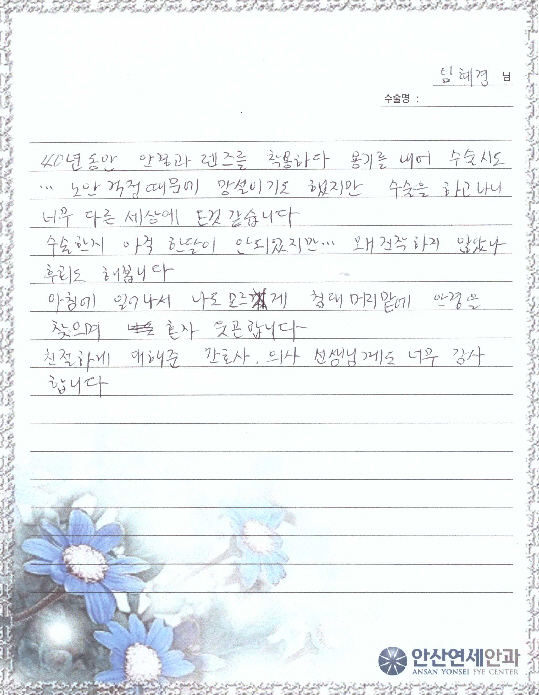 임혜경 님
수술명 :
40년동안 안경과 렌즈를 착용하다 용기를 내어 수술시도
... 노안 걱정때문에 망설이기도 했지만 수술을 하고나니
너무 다른 세상에 온것 같습니다
수술한지 아직 한달이 안되었지만... 왜 진작하지 않았나
후회도 해봅니다
아침에 일어나서 나도모르게 침대 머리맡에 안경을
찾으며 혼자 웃곤합니다
친절하게 대해준 간호사, 의사 선생님께도 너무 감사
합니다
안산연세안과
ANSAN YONSEI EYE CENTER